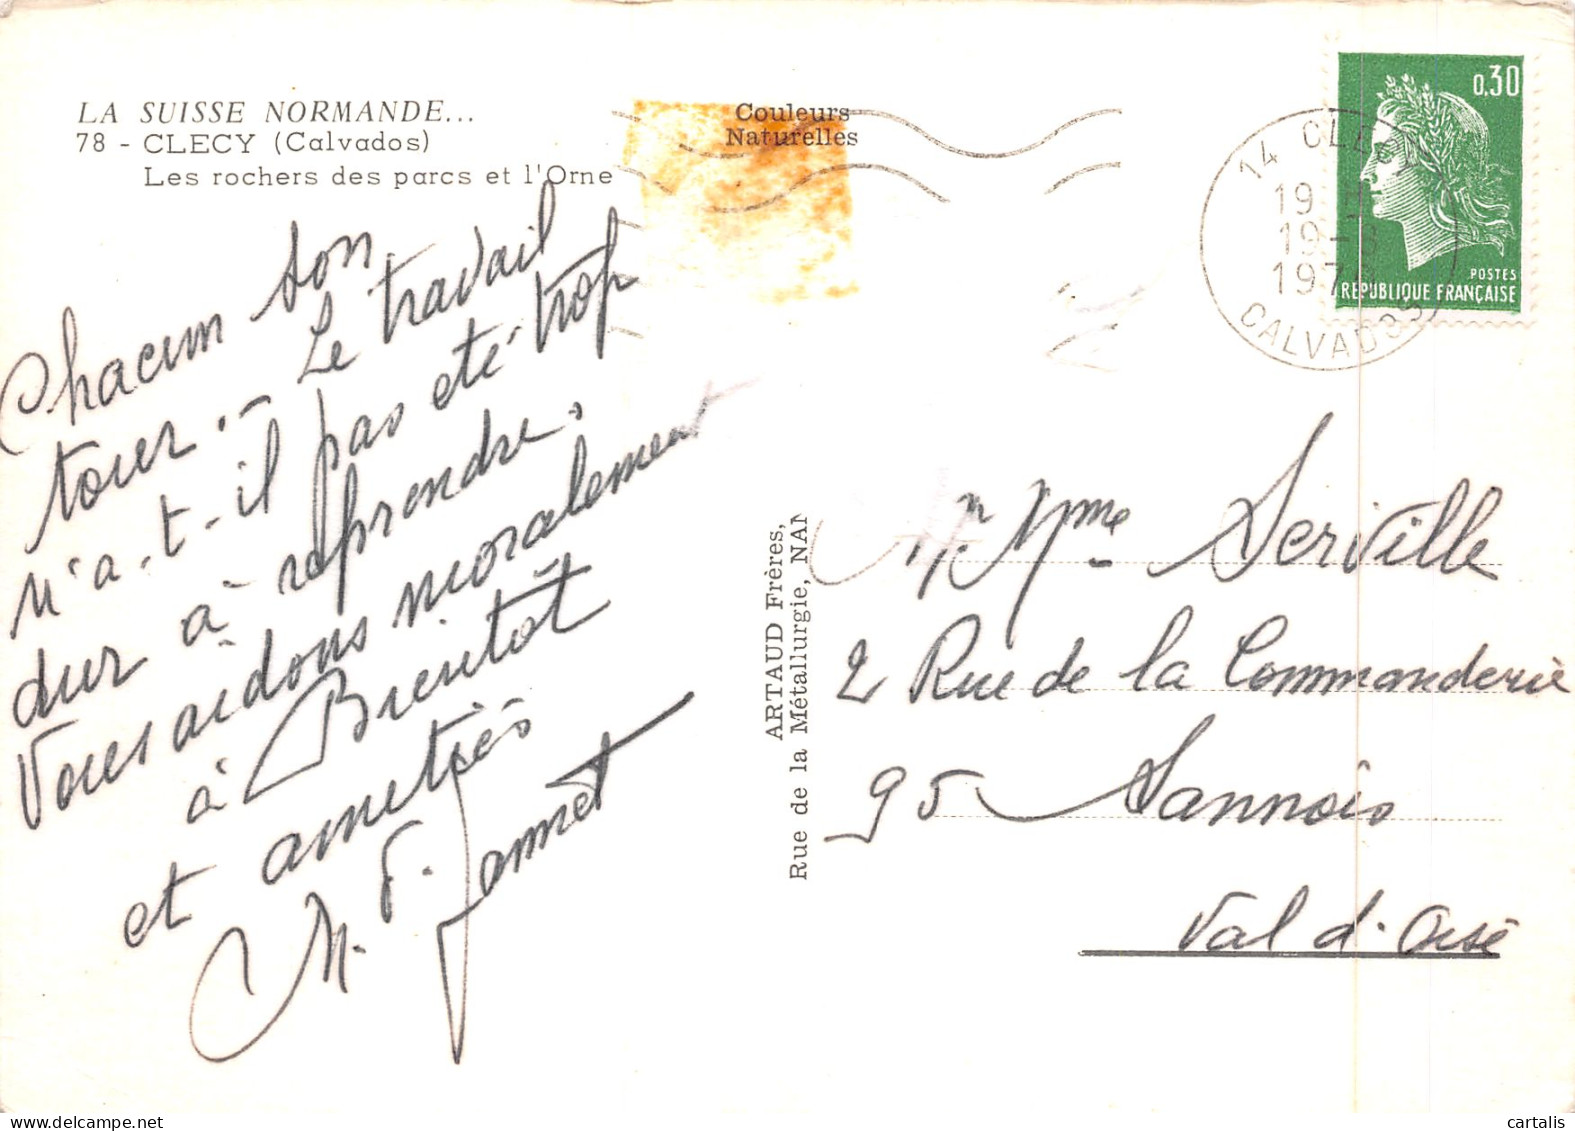 LA SUISSE NORMANDE...
78 - CLECY (Calvados)
Les rochers des parcs et l'Orne
Couleurs
Naturelles
0,30
POSTES
REPUBLIQUE FRANÇAISE
14 CLECY
19 H
19-8
197
CALVADOS
Chacun son
tour.- Le travail
n'a-t-il pas eté trop
dur à reprendre,
Vous aidons moralement
à Bientôt
et amitiés
M. F. Jammet
ARTAUD Frères,
Rue de la Métallurgie, NAN
Mme Serville
2 Rue de la Commanderie
95 Sannois
Val d'Oise
cartalis